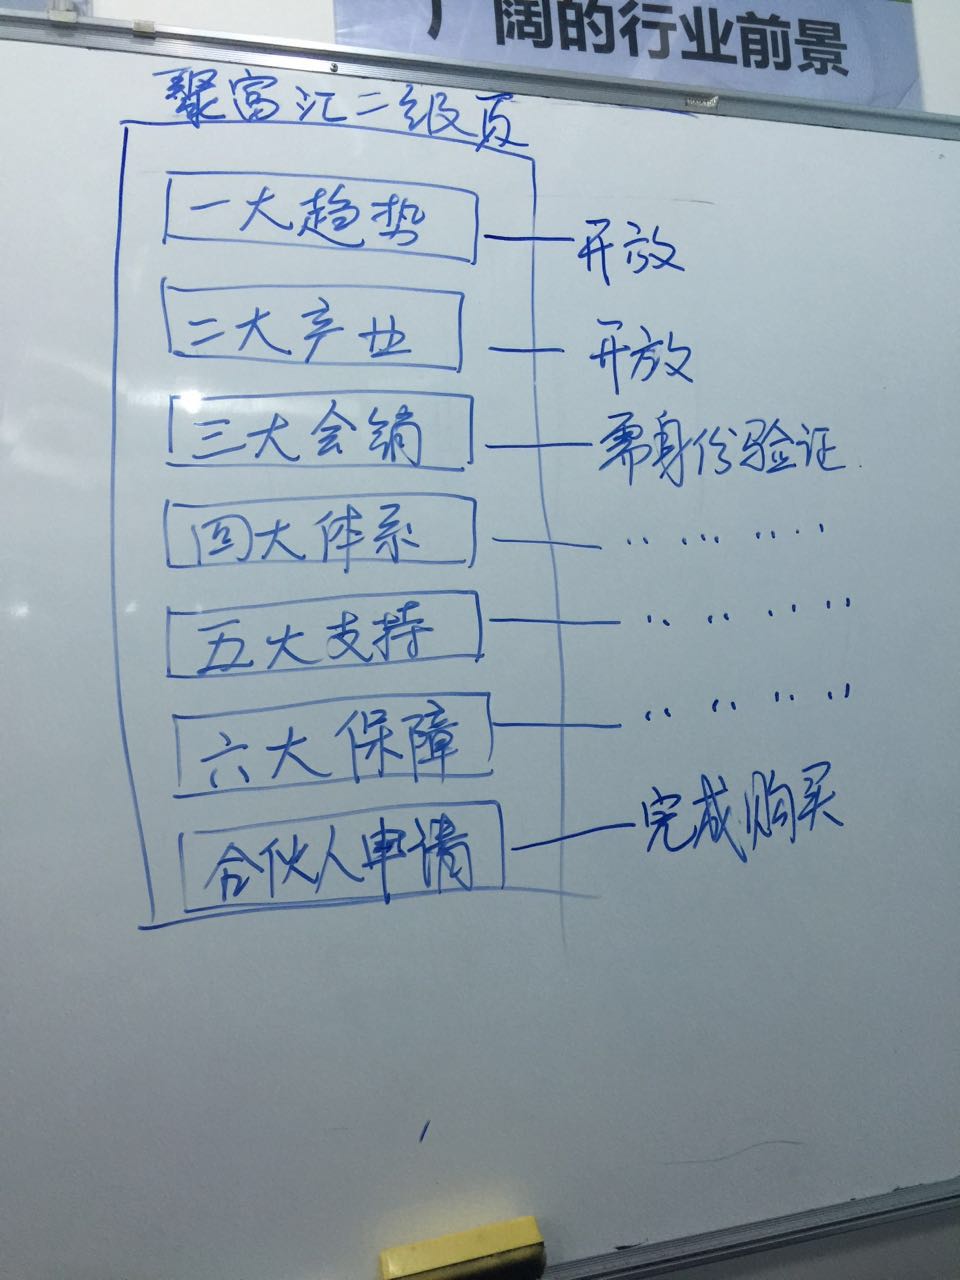 广阔的行业前景
聚富汇二级页
一大趋势 开放
二大产业 开放
三大会销 需身份验证
四大体系 〃 〃 〃 〃
五大支持 〃 〃 〃 〃
六大保障 〃 〃 〃 〃
合伙人申请 完成购买